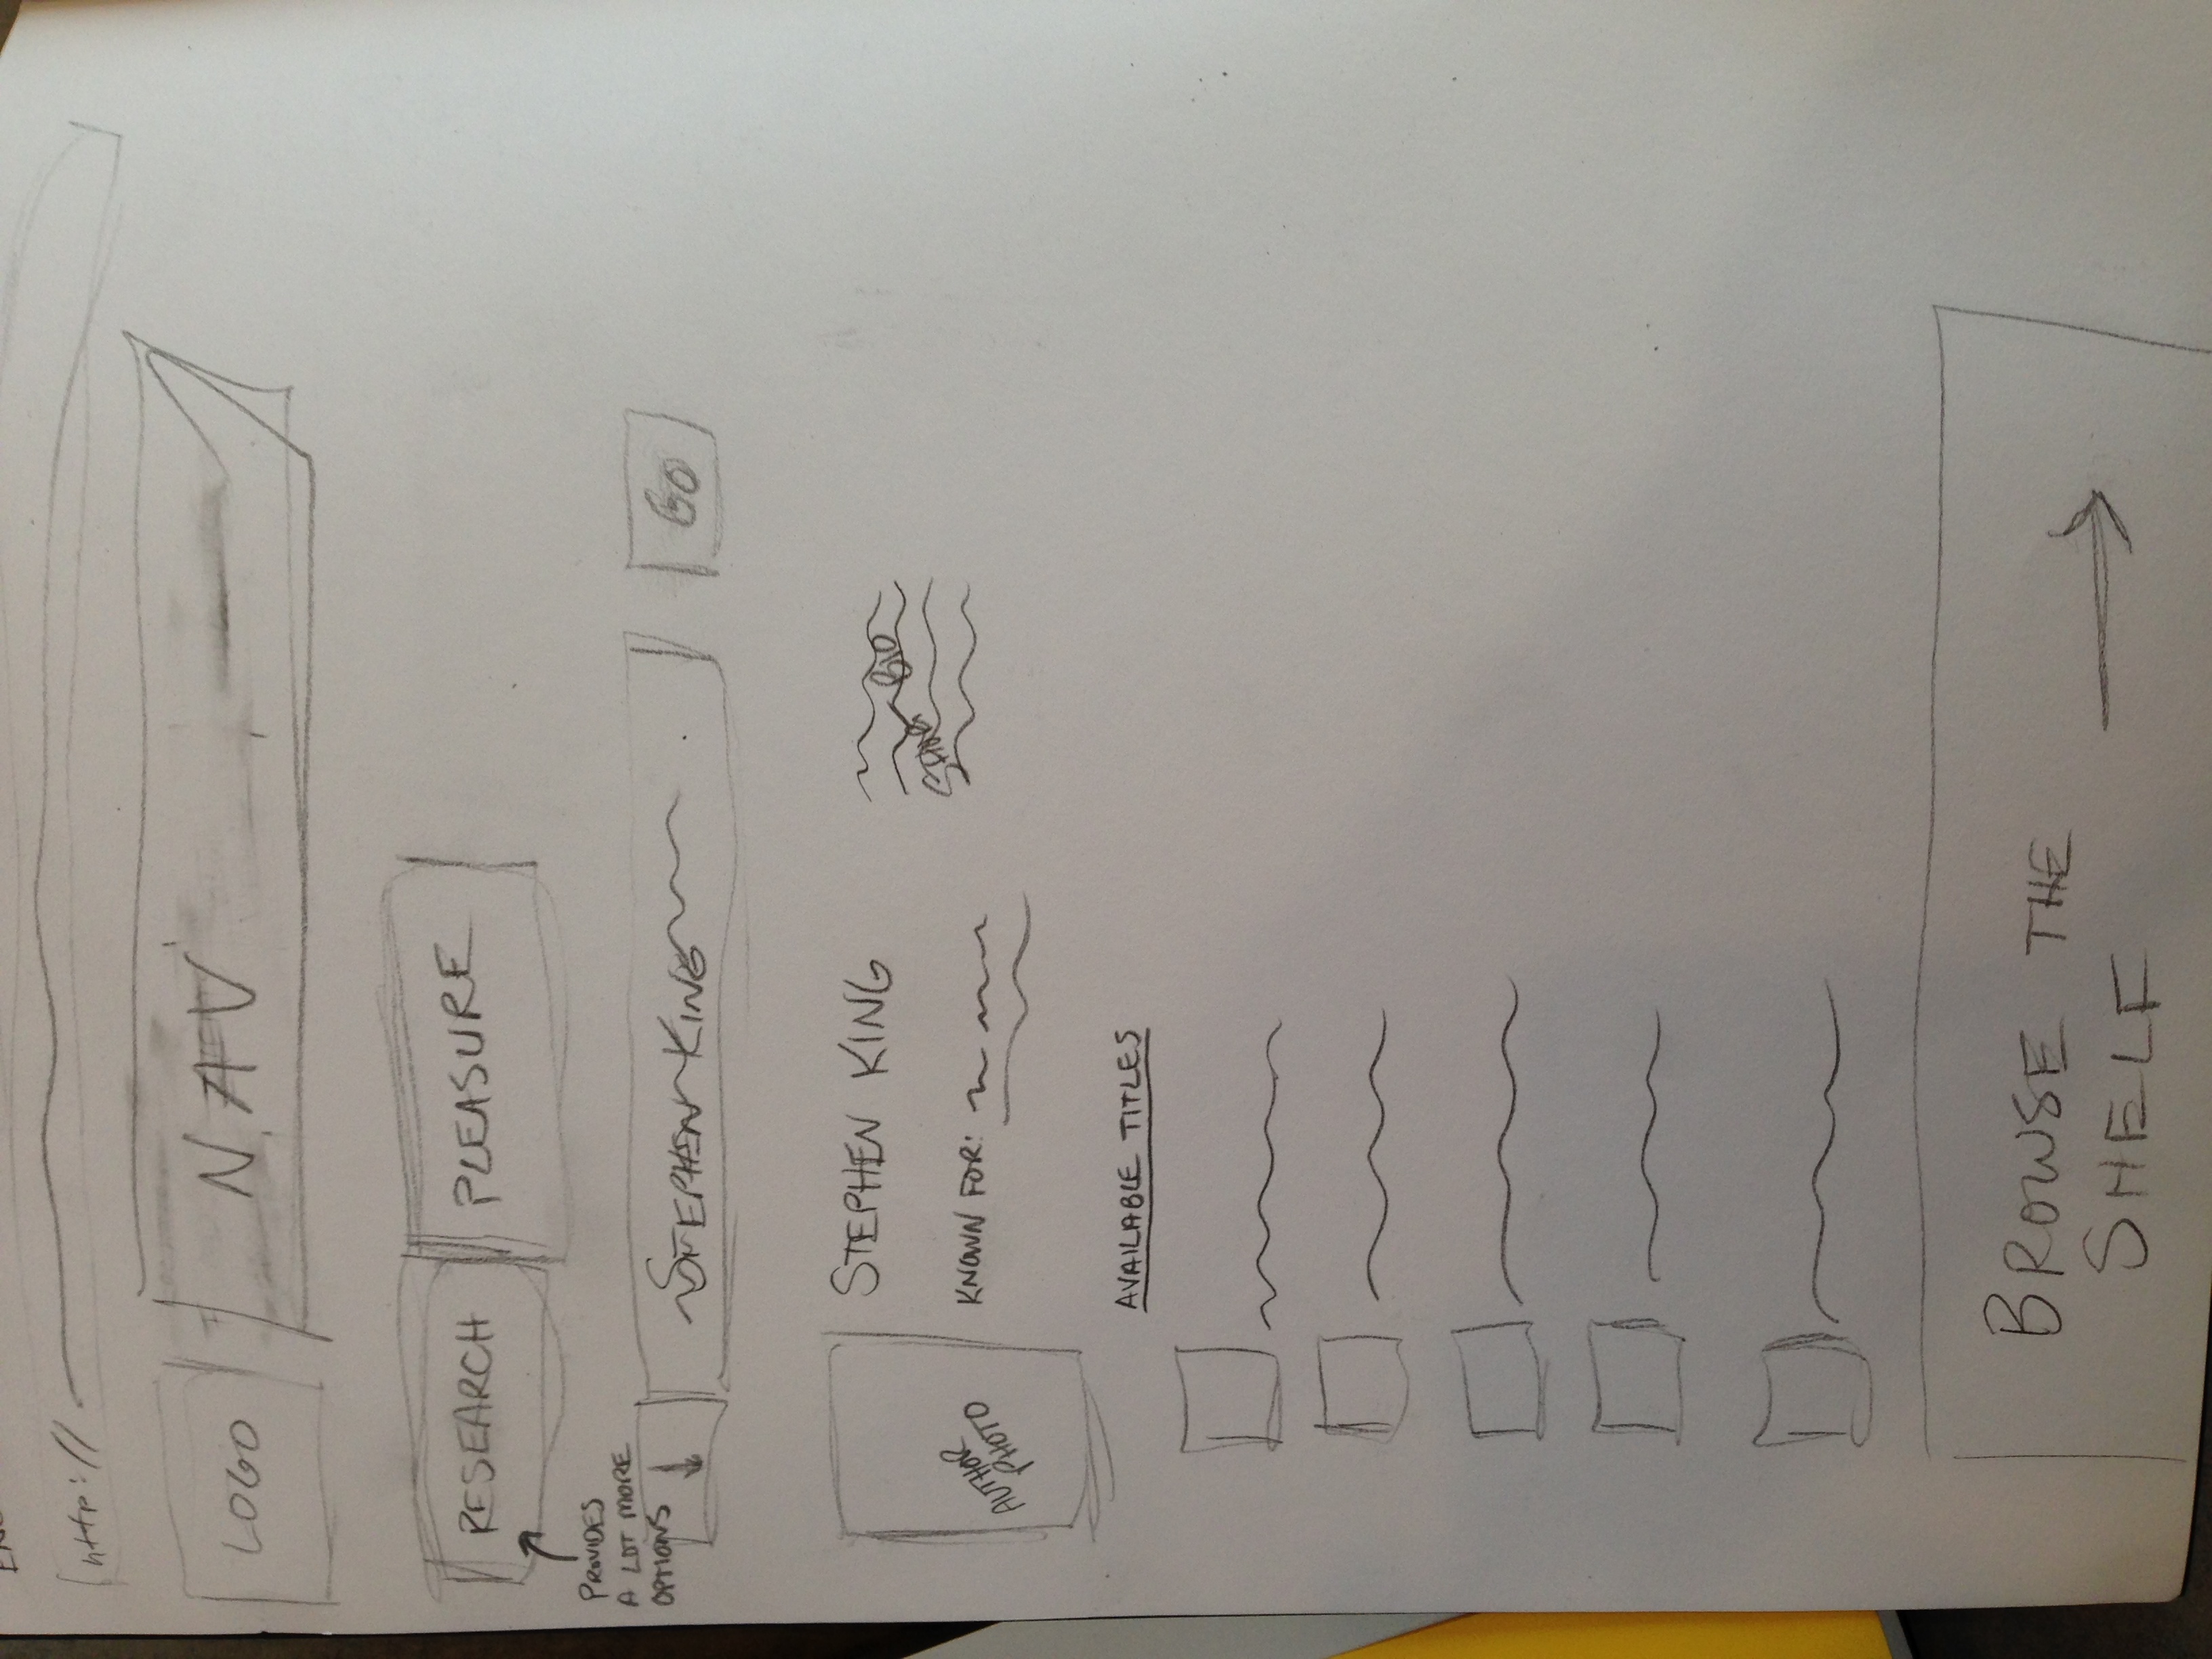 http://
LOGO
NAV
RESEARCH
PLEASURE
PROVIDES
A LOT MORE
OPTIONS
STEPHEN KING
GO
STEPHEN KING
BIO
KNOWN FOR:
AUTHOR
PHOTO
AVAILABLE TITLES
BROWSE THE
SHELF